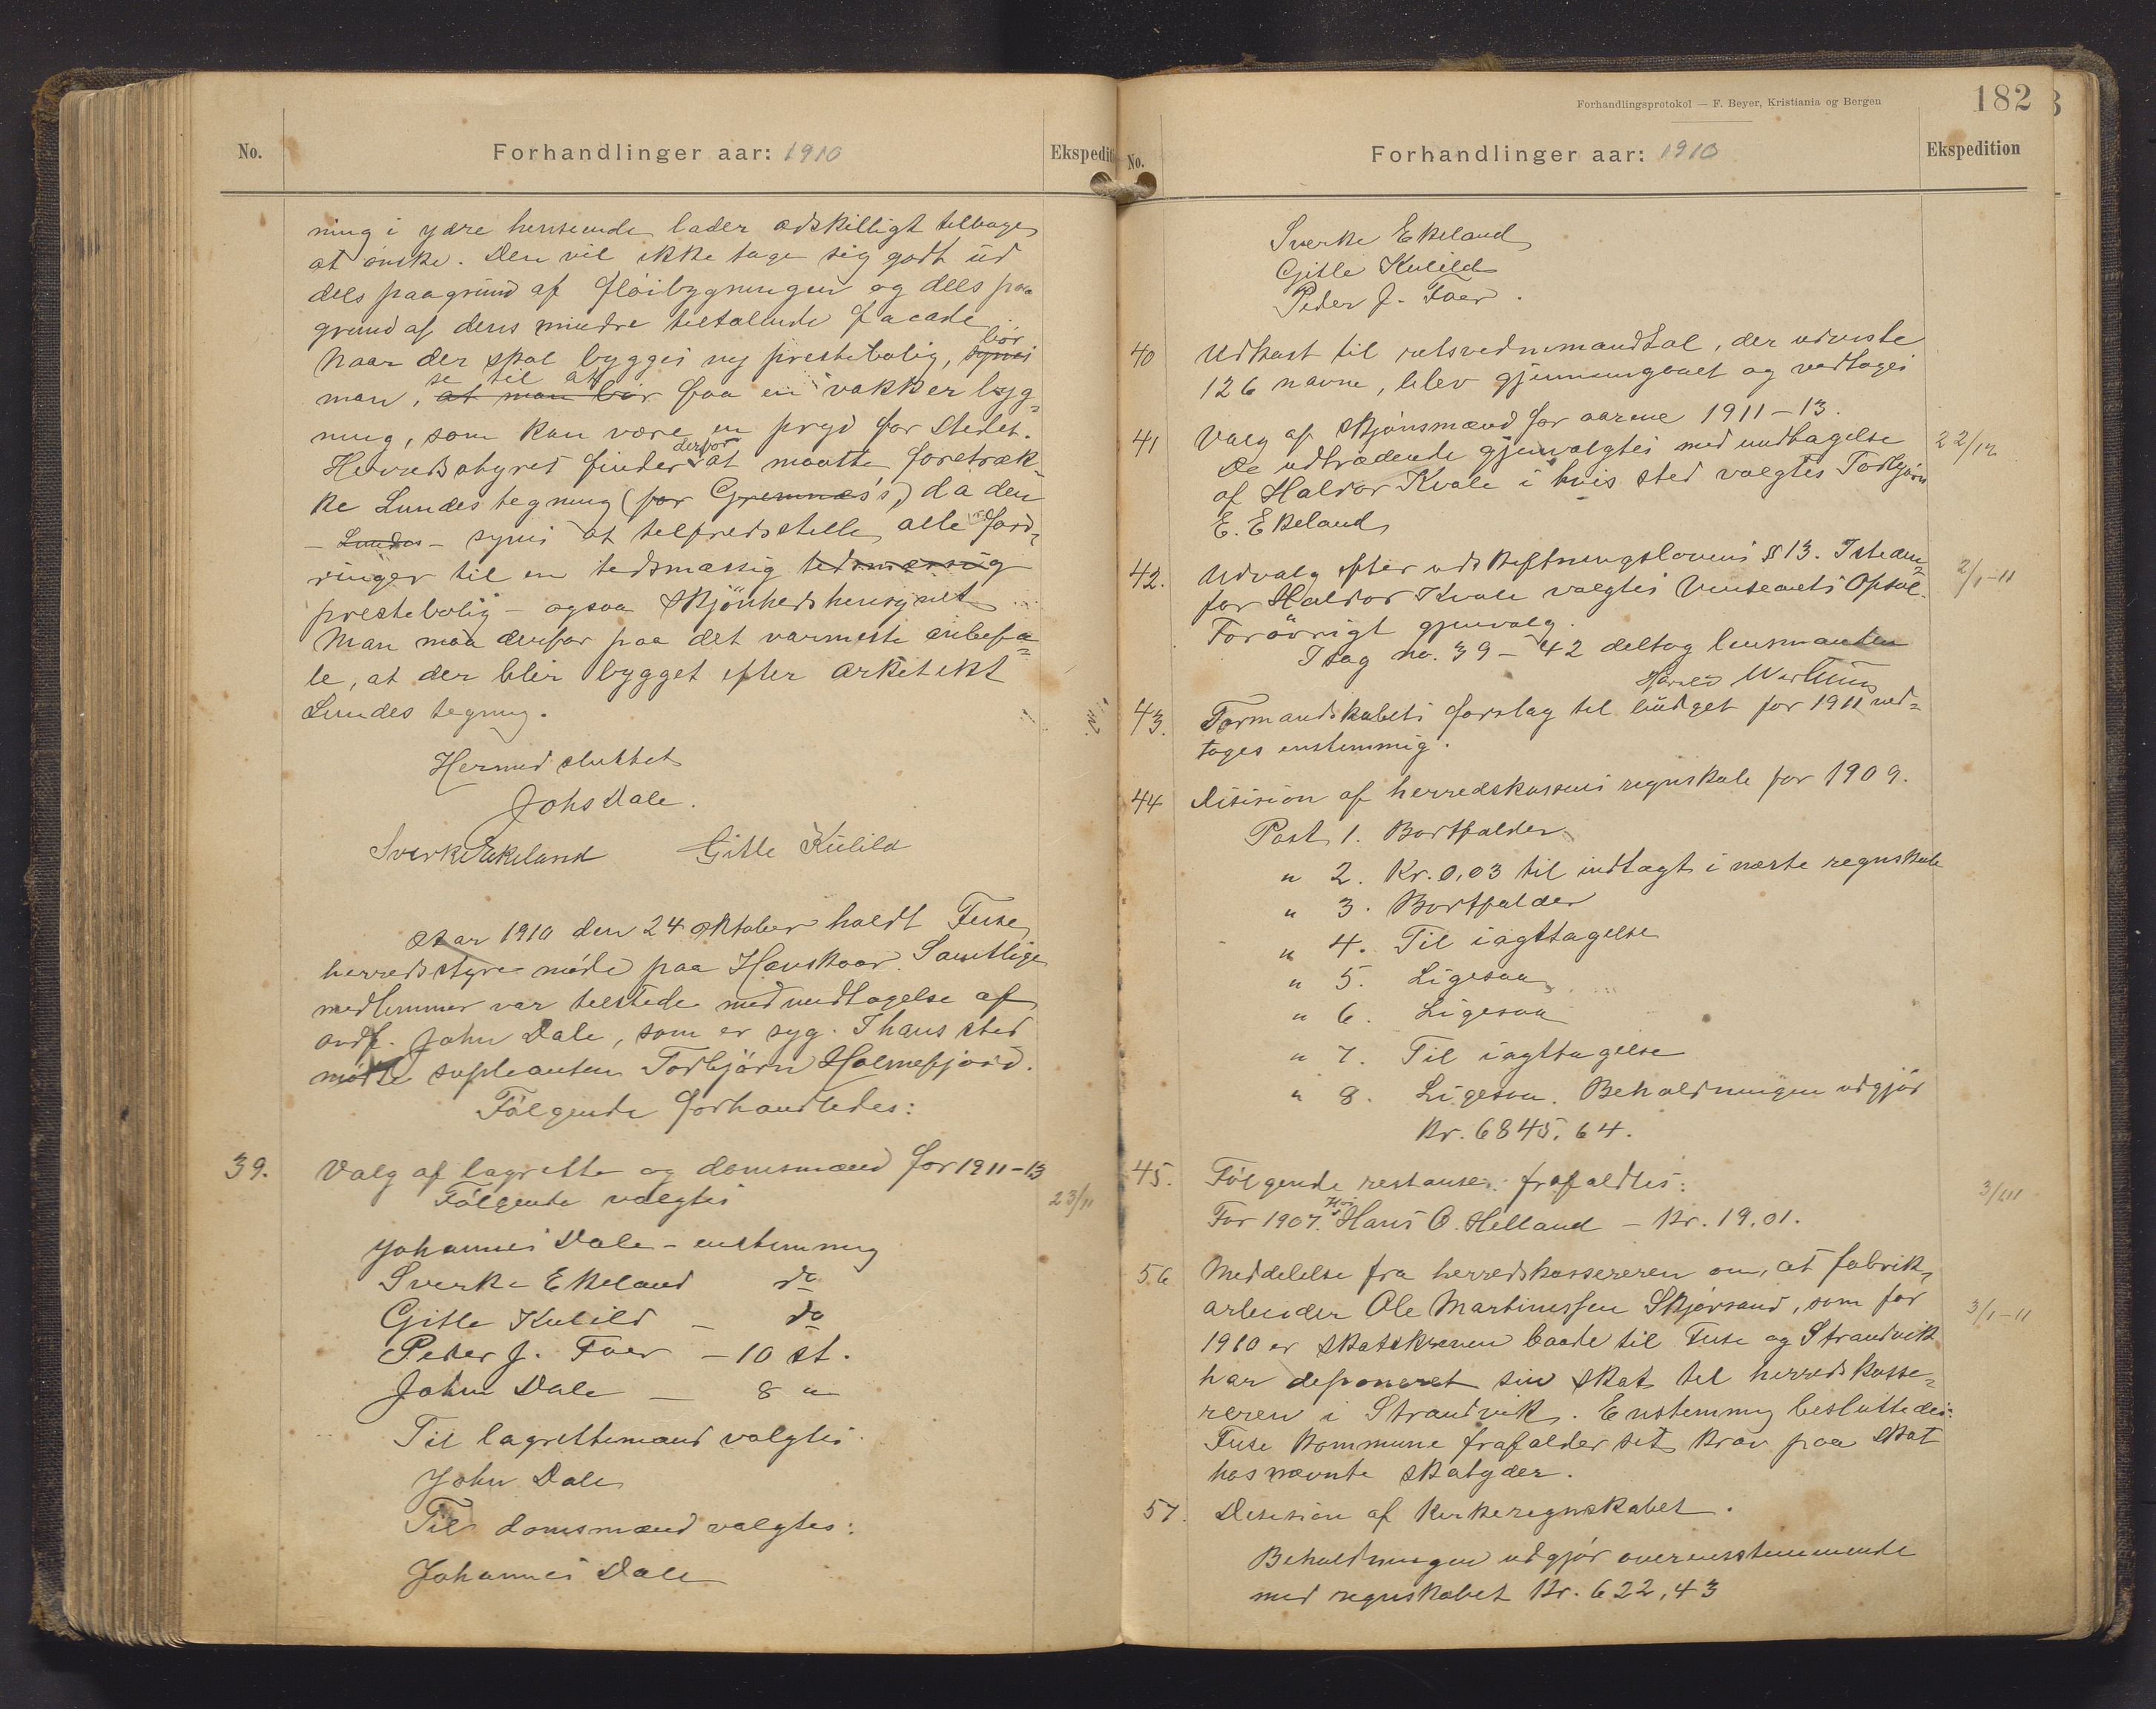 No.
Forhandlinger aar: 1910
Ekspedit
ning i ydre henseende lader adskilligt tilbage
at ønske. Den vil ikke tage sig godt ud
dels paa grund af fløibygningen og dels paa
grund af dens mindre tiltalende facade.
Naar der skal bygges ny prestebolig, synes bør
man, at man bør se til at faa en vakker byg-
ning, som kan være en pryd for stedet.
Herredsstyret finder derfor at maatte foretræk-
ke Lundes tegning (for Gremnæs's,) da den
- Lundes - synes at tilfredsstille alle ford-
ringer til en tidsmæssig tidsmæssig
prestebolig - ogsaa skjønhedshensynet
Man maa derfor paa det varmeste anbefa-
le, at der blir bygget efter arkitekt
Lundes tegning.
Hermed sluttet
Johs Dale.
Sverke Ekeland Gitle Kulild
Aar 1910 den 24 oktober holdt Fuse
herredsstyre møde paa Hauskaar. Samtlige
medlemmer var tilstede med undtagelse af
ordf. John Dale, som er syg. I hans sted
mødte supleanten Torbjørn Holmefjord.
Følgende forhandledes:
39. Valg af lagrette og domsmænd for 1911-13
Følgende valgtes 23/11
Johannes Dale - enstemmig
Sverke Ekeland do
Gitle Kulild - do
Peder J. Toer - 10 st.
John Dale - 8 "
Til lagrettemænd valgtes
John Dale
Til domsmænd valgtes:
Johannes Dale
Forhandlingsprotokol — F. Beyer, Kristiania og Bergen
182
No.
Forhandlinger aar: 1910
Ekspedition
Sverke Ekeland
Gitle Kulild
Peder J. Toer.
40 Udkast til retsvidnemandtal, der udviste
126 navne, blev gjennemgaaet og vedtoges
41 Valg af skjønsmænd for aarene 1911-13.
De udtrædende gjenvalgtes med undtagelse 22/12
af Haldor Kvale i hvis sted valgtes Torbjørn
E. Ekeland
42. Udvalg efter udskiftningslovens § 13. Isteden- 2/1-11
for Haldor Kvale valgtes Vinseants Opsal.
Forøvrigt gjenvalg.
I sag no. 39 - 42 deltog lensmanden
43. Formandskabets forslag til budget for 1911 ved-
toges enstemmig.
44 Disision af herredskassens regnskab for 1909.
Post 1. Bortfalder
" 2. Kr. 0,03 til indtægt i næste regnskab
" 3. Bortfalder
" 4. Til iagttagelse
" 5. Ligesaa
" 6. Ligesaa
" 7. Til iagttagelse
" 8. Ligesaa. Beholdningen udgjør
Kr. 6845,64.
45. Følgende restanser frafaldtes: 3/1 11
For 1907. Hos Hans O. Helland - Kr. 19.01.
56 Meddelelse fra herredskassereren om, at fabrik-
arbeider Ole Martinessen Skjørsand, som for 3/1-11
1910 er skatskreven baade til Fuse og Strandvik
har deponeret sin skat til herredskasse-
reren i Strandvik. Enstemmig besluttedes:
Fuse kommune frafalder sit krav paa skat
hos nævnte skatyder.
57. Desision af kirkeregnskabet.
Beholdningen udgjør overensstemmende
med regnskabet Kr. 622,43